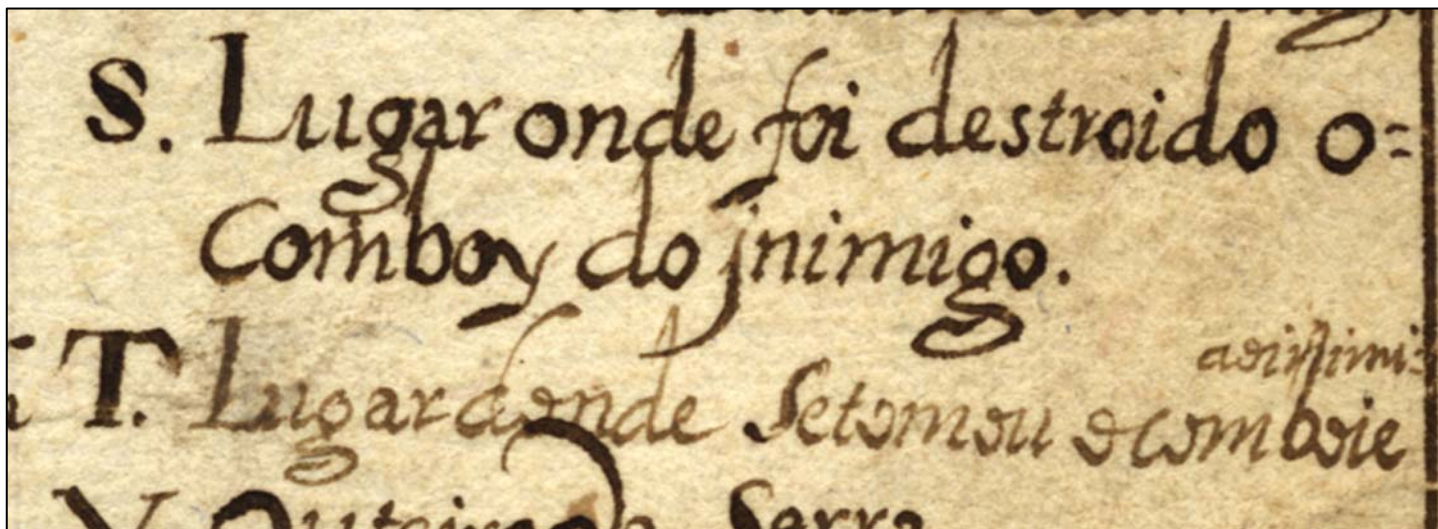 S. Lugar onde foi destroido o=
Comboy do jnimigo.
T. Lugar donde Se tomou o comboie
V. Outeiro da Serra